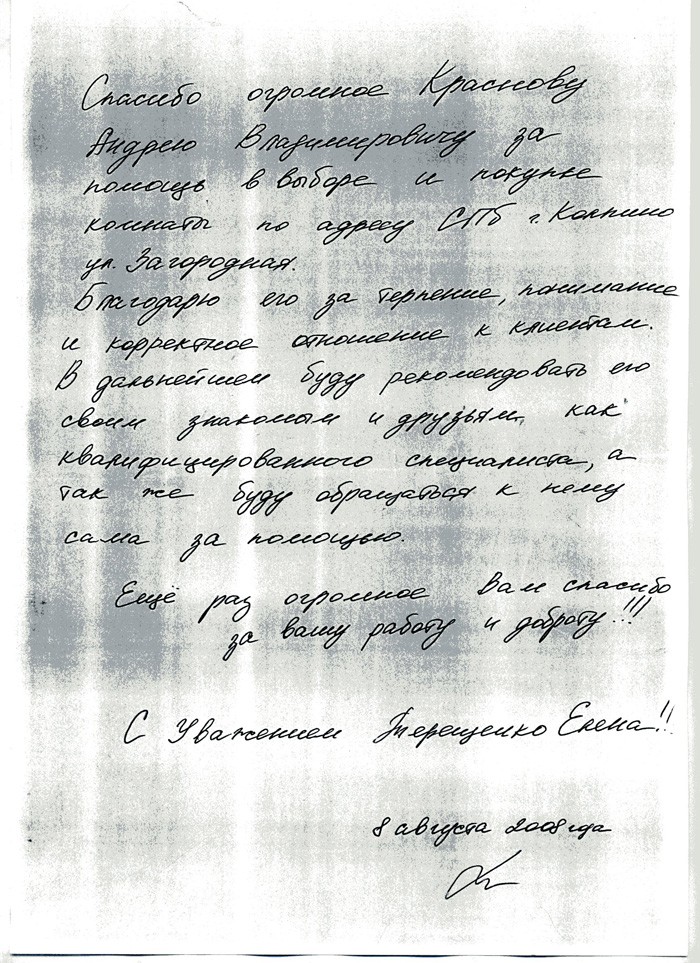 Спасибо огромное Краснову
Андрею Владимировичу за
помощь в выборе и покупке
комнаты по адресу СПб г. Колпино
ул. Загородная.
Благодарю его за терпение, понимание
и корректное отношение к клиентам.
В дальнейшем буду рекомендовать его
своим знакомым и друзьям, как
квалифицированного специалиста, а
так же буду обращаться к нему
сама за помощью.
Ещё раз огромное Вам спасибо
за вашу работу и доброту!!!
С Уважением Терещенко Елена!!
8 августа 2008 года